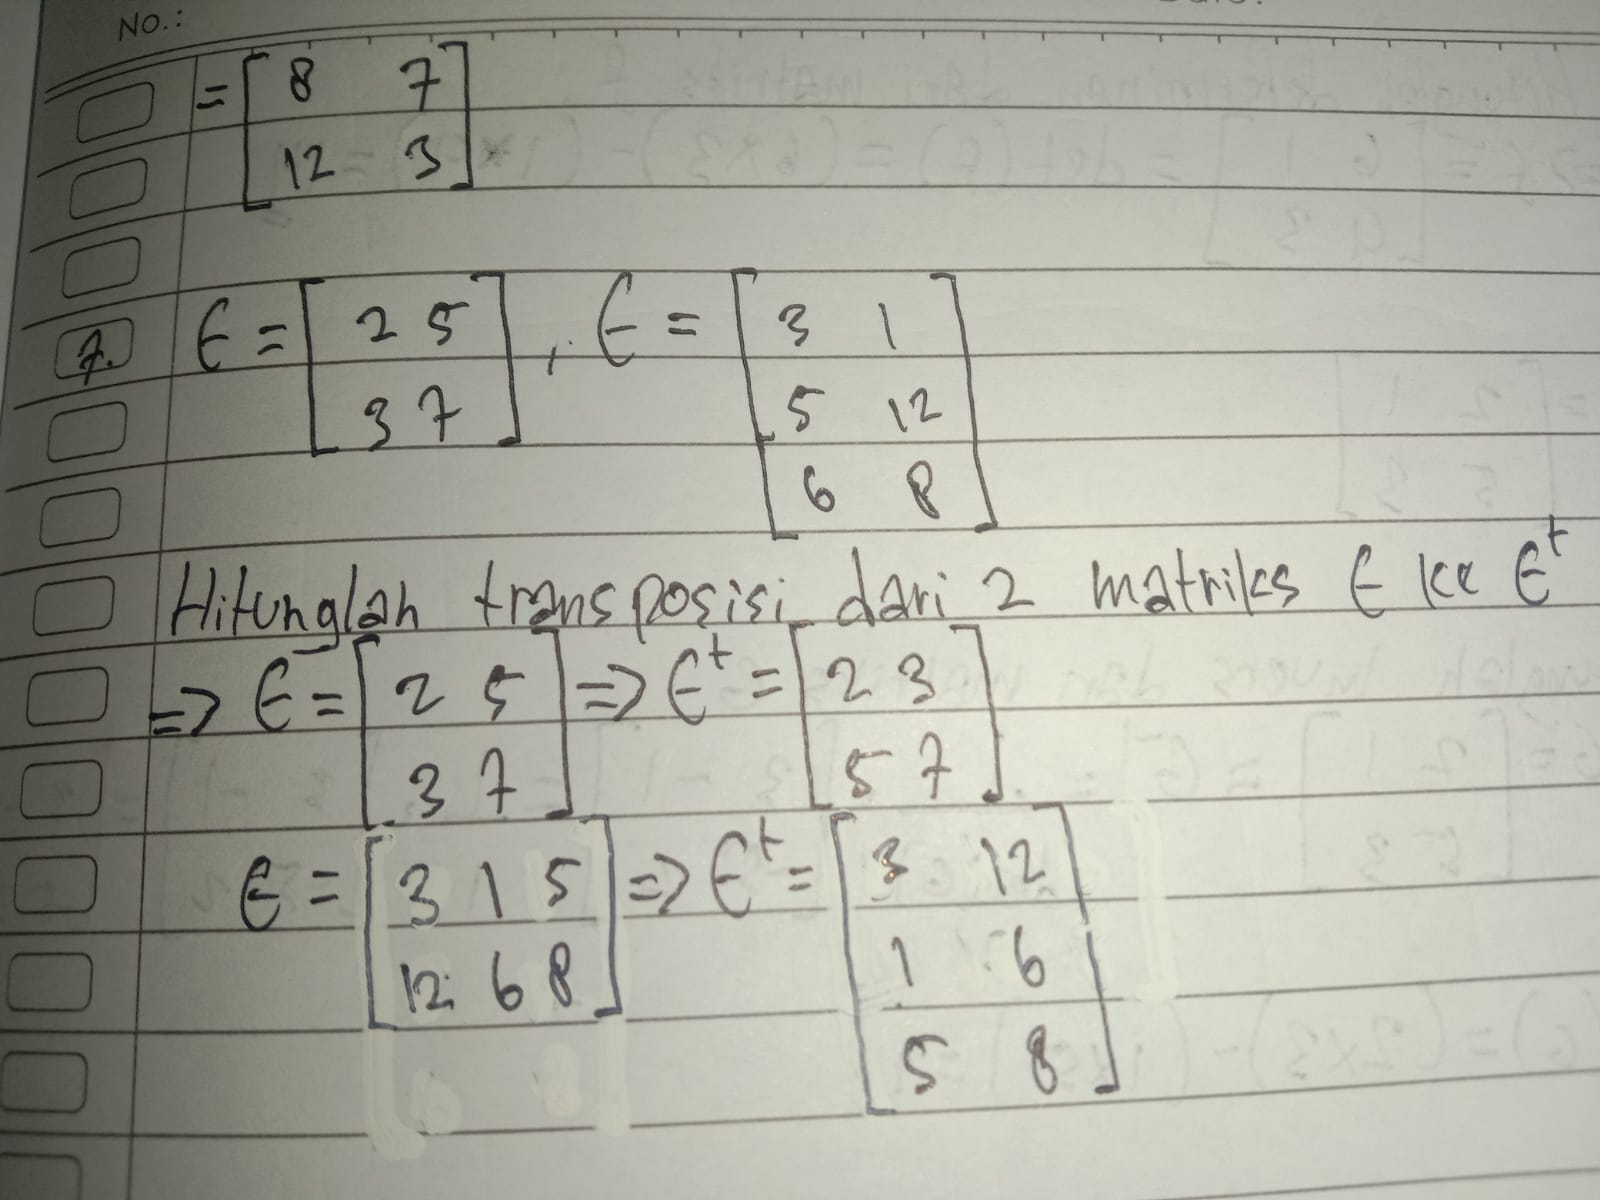 No.:
= [ 8 7
12 3 ]
7. E = [ 2 5 ] , E = [ 3 1
3 7 5 12
6 8 ]
Hitunglah transposisi dari 2 matriks E ke E^t
=> E = [ 2 5 => E^t = [ 2 3
3 7 ] 5 7 ]
E = [ 3 1 5 => E^t = [ 3 12
12 6 8 ] 1 6
5 8 ]